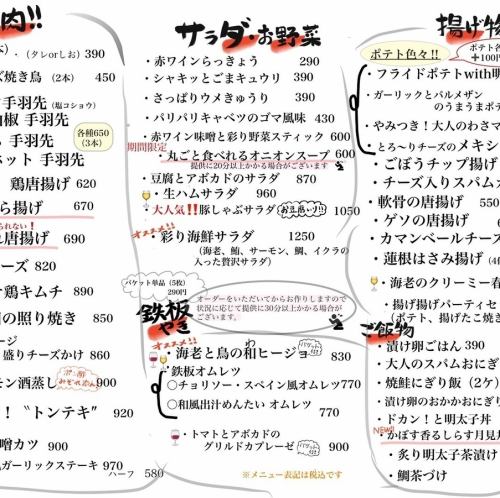 肉!!
(タレorしお) 390
ズ焼き鳥 (2本) 450
手羽先 (塩コショウ)
山椒 手羽先
手羽先
ネット 手羽先
各種650
(3本)
鶏唐揚げ 620
ら揚げ 670
られない!
れ唐揚げ 690
ーズ 820
け鶏キムチ 890
の照り焼き 850
ージ
盛りチーズかけ 860
モン酒蒸し 900
!〝トンテキ〟 920
噌カツ 900
風ガーリックステーキ 970
ハーフ 580
サラダ・お野菜
・赤ワインらっきょう 290
・シャキッとごまキュウリ 390
・さっぱりウメきゅうり 390
・パリパリキャベツのゴマ風味 430
・赤ワイン味噌と彩り野菜スティック 600
期間限定
・丸ごと食べれるオニオンスープ 600
提供に20分以上かかる場合がございます
・豆腐とアボカドのサラダ 870
・生ハムサラダ 960
・大人気!!豚しゃぶサラダ 1050
オススメ!!
・彩り海鮮サラダ 1250
(海老、鮪、サーモン、鯛、イクラの
入った贅沢サラダ)
バケット単品(5枚)
290円
鉄板
やき
オーダーをいただいてからお作りしますので
状況に応じて提供に30分以上かかる場合が
ございます。
オススメ!!
・海老と鳥の和ヒージョ 830
わ
・鉄板オムレツ
○チョリソー・スペイン風オムレツ 770
○和風出汁めんたい オムレツ 770
・トマトとアボカドの
グリルカプレーゼ 900
※メニュー表記は税込です
揚げ物
ポテト色々!!
ポテト各
+100円
・フライドポテトwith明
・ガーリックとパルメザン
のうまうまポ
・やみつき!大人のわさマ
・とろ〜りチーズのメキシ
・ごぼうチップ揚げ
・チーズ入りスパム
・軟骨の唐揚げ 550
・ゲソの唐揚げ
・カマンベールチーズ
・蓮根はさみ揚げ (4
・海老のクリーミー春
・揚げ揚げパーティセ
(ポテト、揚げたこ焼き
ご飯物
・漬け卵ごはん 390
・大人のスパムおにぎ
・焼鮭にぎり飯 (2ケ)
・漬け卵のおかかおにぎり
・ドカン!と明太子丼
NEW!!
・かぼす香るしらす月見丼
・炙り明太子茶漬け
・鯛茶づけ